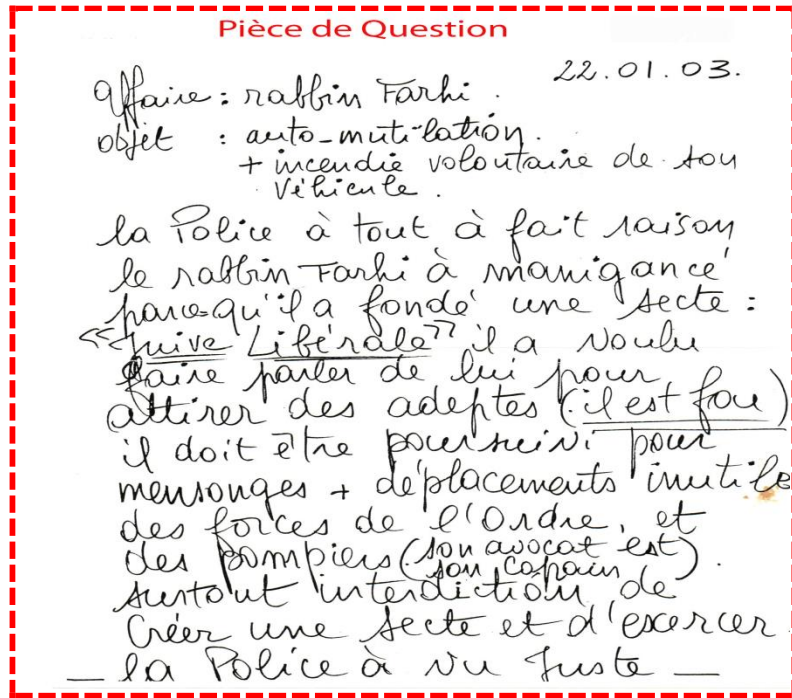 Pièce de Question
22.01.03.
affaire : rabbin Farhi.
objet : auto-mutilation.
+ incendie volontaire de son
véhicule.
la Police à tout à fait raison
le rabbin Farhi à manigancé
parce-qu'il a fondé une secte :
"Juive Libérale" il a voulu
faire parler de lui pour
attirer des adeptes (il est fou)
il doit être poursuivi pour
mensonges + déplacements inutile
des forces de l'Ordre, et
des pompiers (son avocat est
son copain).
surtout interdiction de
Créer une secte et d'exercer
_ la Police à vu juste _